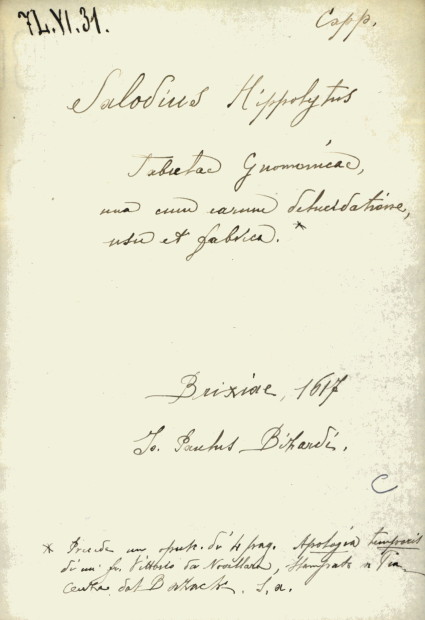 7L.VI.31.
Capp.
Salodius Hippolytus
Tabulae Gnomonicae,
una cum earum delucidatione,
usu et fabrica. *
Brixiae, 1617
Io. Paulus Bizardi.
C
* Precede un opusc. di 4 pag. Apologia temporis
di un fr. Vittorio da Novillara, stampato a
centia dal s.a.